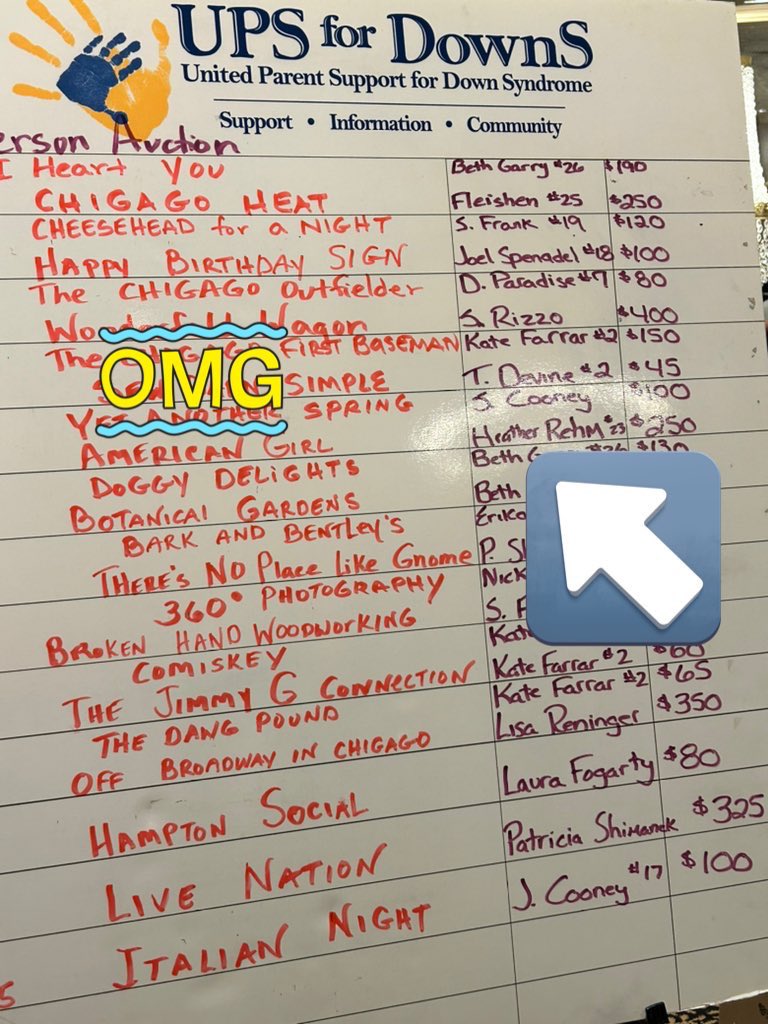 UPS for DownS
United Parent Support for Down Syndrome
Support • Information • Community
erson Auction
I Heart You Beth Garry #26 $190
CHIGAGO HEAT Fleishen #25 $250
CHEESEHEAD for a NIGHT S. Frank #19 $120
HAPPY BIRTHDAY SIGN Joel Spenadel #18 $100
The CHIGAGO Outfielder D. Paradise #7 $80
Wagon S. Rizzo $400
The FIRST BASEMAN Kate Farrar #2 $150
OMG
SIMPLE T. Devine #2 $45
ANOTHER SPRING J. Cooney $100
AMERICAN GIRL Heather Rehm #23 $250
DOGGY DELIGHTS Beth $130
BOTANICAL GARDENS Beth
BARK AND BENTLEY'S
THERE'S NO Place Like Gnome P.
360° PHOTOGRAPHY Nick
BROKEN HAND WOODWORKING S.
COMISKEY
THE JIMMY G CONNECTION Kate Farrar #2 $60
THE DANG POUND Kate Farrar #2 $65
OFF BROADWAY IN CHICAGO Lisa Reninger $350
HAMPTON SOCIAL Laura Fogarty $80
LIVE NATION Patricia Shimanek $325
ITALIAN NIGHT J. Cooney #17 $100